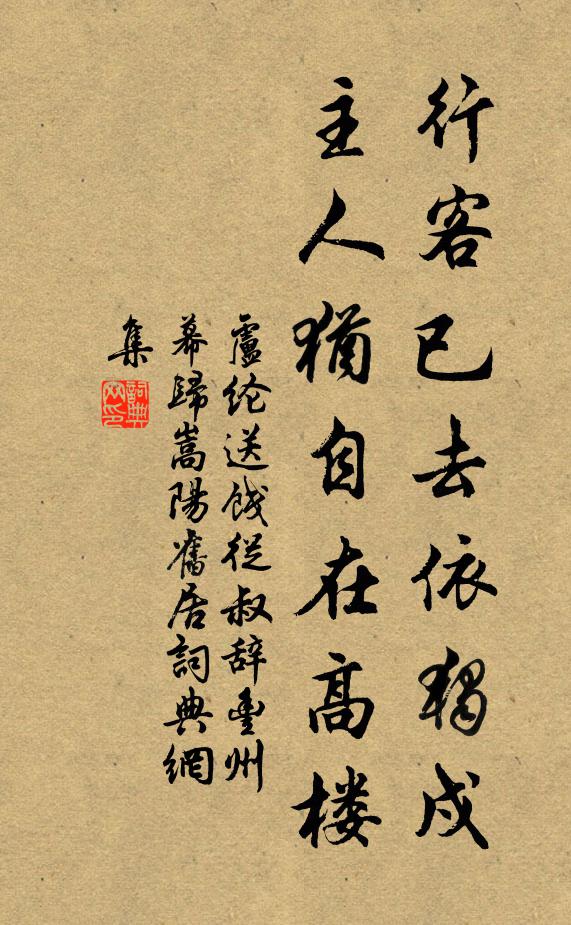 行客已去依獨戍
主人猶自在高楼
盧纶送餞從叔辞豊州
幕歸嵩陽舊居詞典網
集
詞典
网印